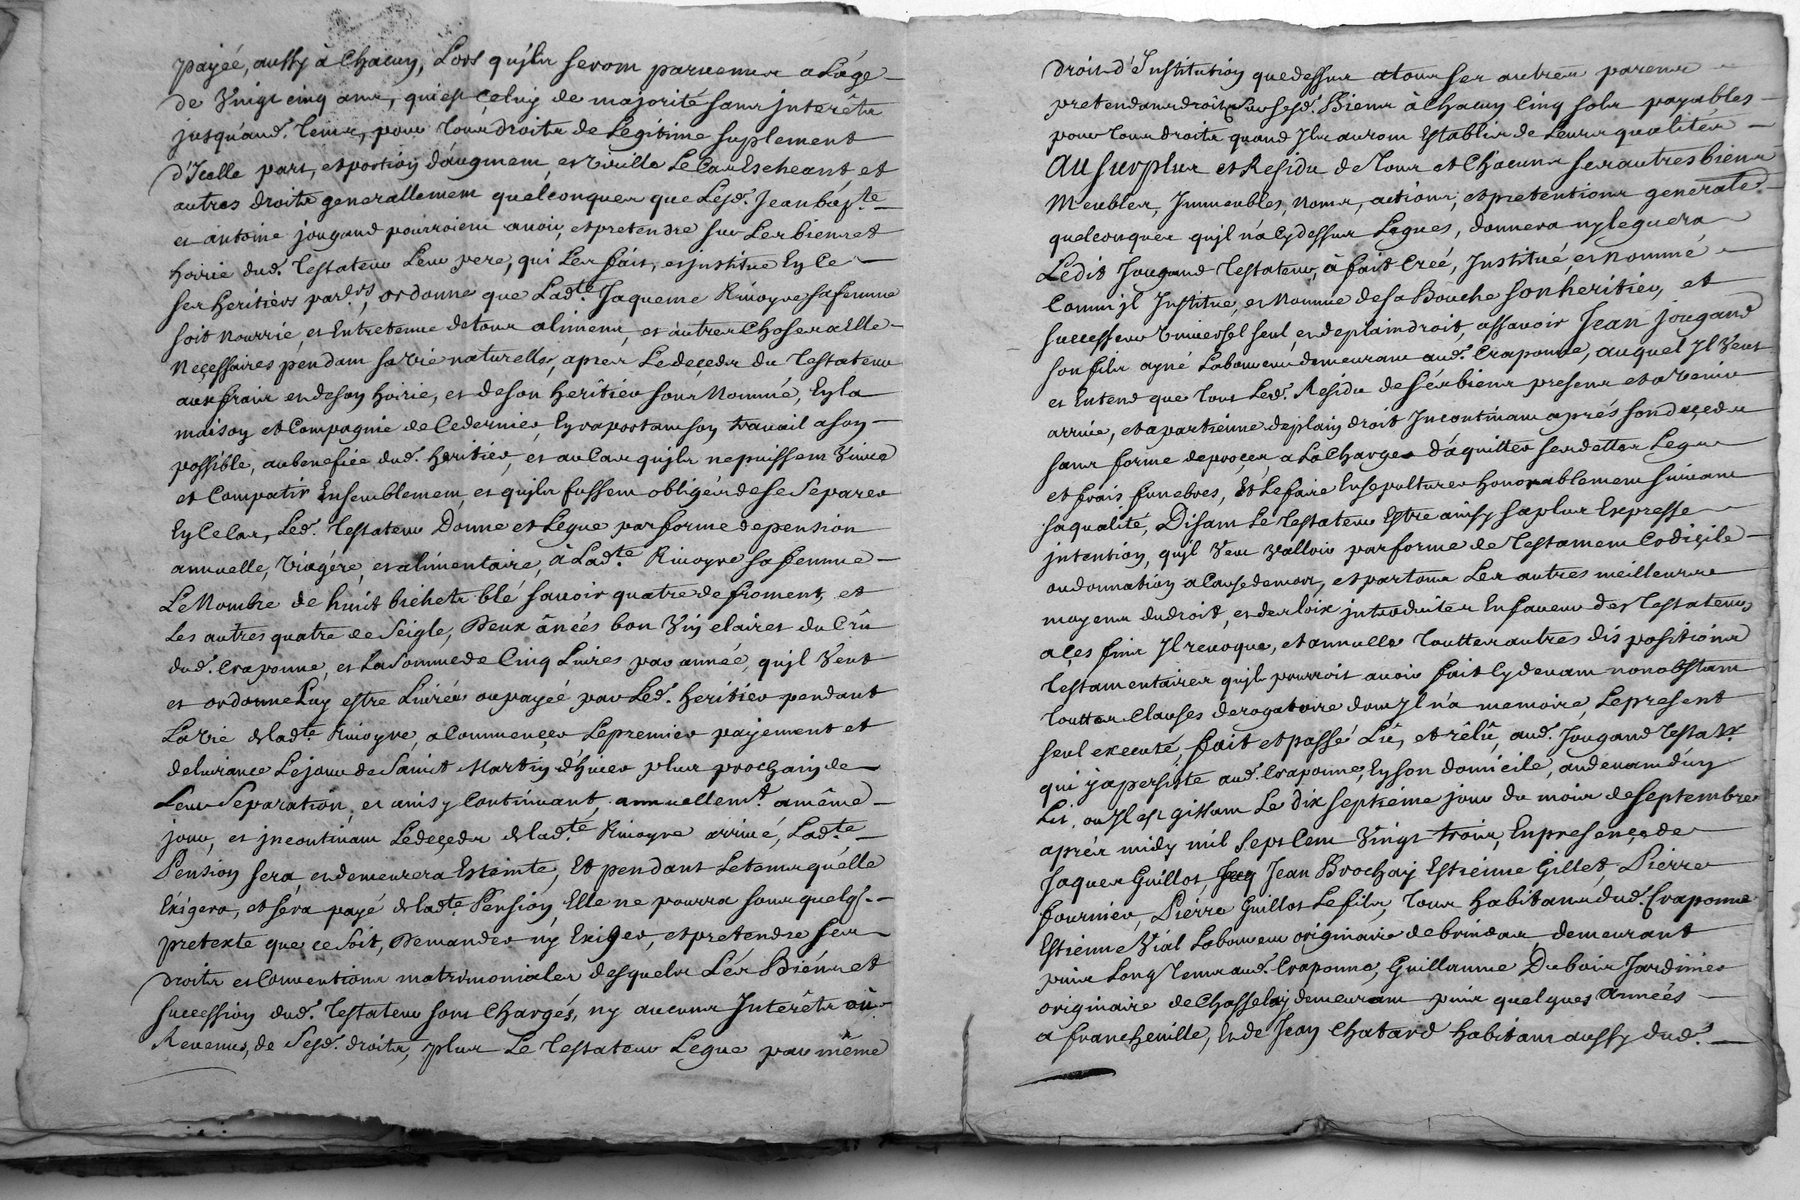 payéé, aussy à Chacun, Lors qu'jls seront parvenus a Láge
de Vingt cinq ans, qui est Celuy de majorité sans jnterêts
jusqu'aud. tems, pour tous droits de Légitime suplement
d'Jcelle part, et portion d'augment, et Vueille Le Cas Escheant et
autres droits generallement quelconques que Lesd. Jean bap.te
et antoine jougand pourroient avoir, et pretendre sur Les biens et
hoirie dud. Testateur Leur pere, qui Les fait, et justitue En Ce
ses heritiers par.ers, ordonne que Lad.te Jaqueme Rivoyre sa femme
soit Nourrie, et Entretenue de tous aliments, et autres Choses a Elle
Neçessaires pendant sa Vie naturelle, apres Le deçeds du Testateur
aux frais et de son hoirie, et de son Herîtier sous Nommé, En la
maison et Compagnie de Cedernier, En raportant son travail a son
possible, au benefiée dud. heritier, et au Cas qu'jls ne puissent Vivre
et Compatir Ensemblement, et qu'jls fussent obligés de se Separer
En Ce Cas, Led. Testateur Donne et Legue par forme de pension
annuelle, Viagére, et alimentaire, à Lad.te Rivoyre sa femme
Le Nombre de huit bichets blé savoir quatre de froment, et
Les autres quatre de Seigle, Deux ânéés bon Vin clairet du Crû
dud. Craponne, et La Somme de Cinq Livres par année, qu'jl Veut
et ordonne Luy estre Livrée ou payéé par Led. heritier pendant
La Vie de lad.te Rivoyre, a Commençer Le premier payement et
delivrance Le jour de Saint Martin d'hiver plus prochain de
Leur Separation, et ainsy Continuant annuellem.t a même
jour, et jncontinant Le deçeds de lad.te Rivoyre arrivé, Lad.te
Pension sera, et demeurera Esteinte, Et pendant Le tems qu'elle
Exigera, et séra payé de lad.te Pension, Elle ne pourra sous quelq.
pretexte que ce Soit, Demander ny Exiger, et pretendre ses
droits et Conventions matrimoniales desquels Les Biéns et
succession dud. Testateur sont Chargés, ny aucuns Interêts où
Revenus, de Sesd. droits, plus Le Testateur Legue par même
droit d'Institution que dessus a tous ses autres parents
pretendans droits sur sesd. Biens à Chacun Cinq sols payables
pour tous droits quand Jls auront Establis de Leurs qualités
Au surplus et Residu de tous et Chacuns ses autres biens
Meubles, Immeubles, noms, actions, et pretentions generale.
quelconques qu'jl n'a Cy dessus Legués, donnera ny leguera
Ledit Jougand Testateur, à fait Creé, Institué, et nommé
Comm'jl Institue, et Nomme de sa Bouche son heritier, et
successeur Universel seul, et de plain droit, assavoir Jean jougand
son fils ayné Laboureur demeurant aud. Craponne, auquel Jl Veut
et Entend que tous Led. Residu de sés biens presens et avenir
arrive, et apartienne de plain droit Jncontinant aprés son deçeds
sans forme de proçes a La Charge d'áquitter ses dettes Legue
et frais funebres, Et Le faire Ensepulturer honorablement suivant
sa qualité, Disant Le Testateur Estre ainsy sa plus Expresse
jntention, qu'jl Veut Valloir par forme de Testament Codiçile
ou donnation a Cause de mort, et par tous Les autres meilleurs
moyens du droit, et des loix jntroduites En faveur des Testateurs,
a çes fins Jl revoque, et annulle toutter autres dispositions
testamentaires qu'jls pourroit avoir fait Cy devant nonobstant
touttes Clauses derogatoire dont Jl n'a memoire, Le present
seul executé, fait et passé Lû, et rêlû, aud. Jougand Testat.r
qui y a persisté aud. Craponne, En son domicile, au devant d'un
Lit, ou Jl est gissant Le dix septiéme jour du mois de septembre
aprés midy mil sept Cent Vingt trois, En presençe de
Jaques Guillot, Jean Brochay Estienne Gillet, Pierre
fournier, Pierre Guillot Le fils, tous habitans dud. Craponne
Estienne Vial Laboureur originaire de brindas, demeurant
puis Long tems aud. Craponne, Guillaume Dubois Jardinier
originaire de Chasselay demeurant puis quelques Années
a francheville, Et de Jean Chatard habitant aussy dud.